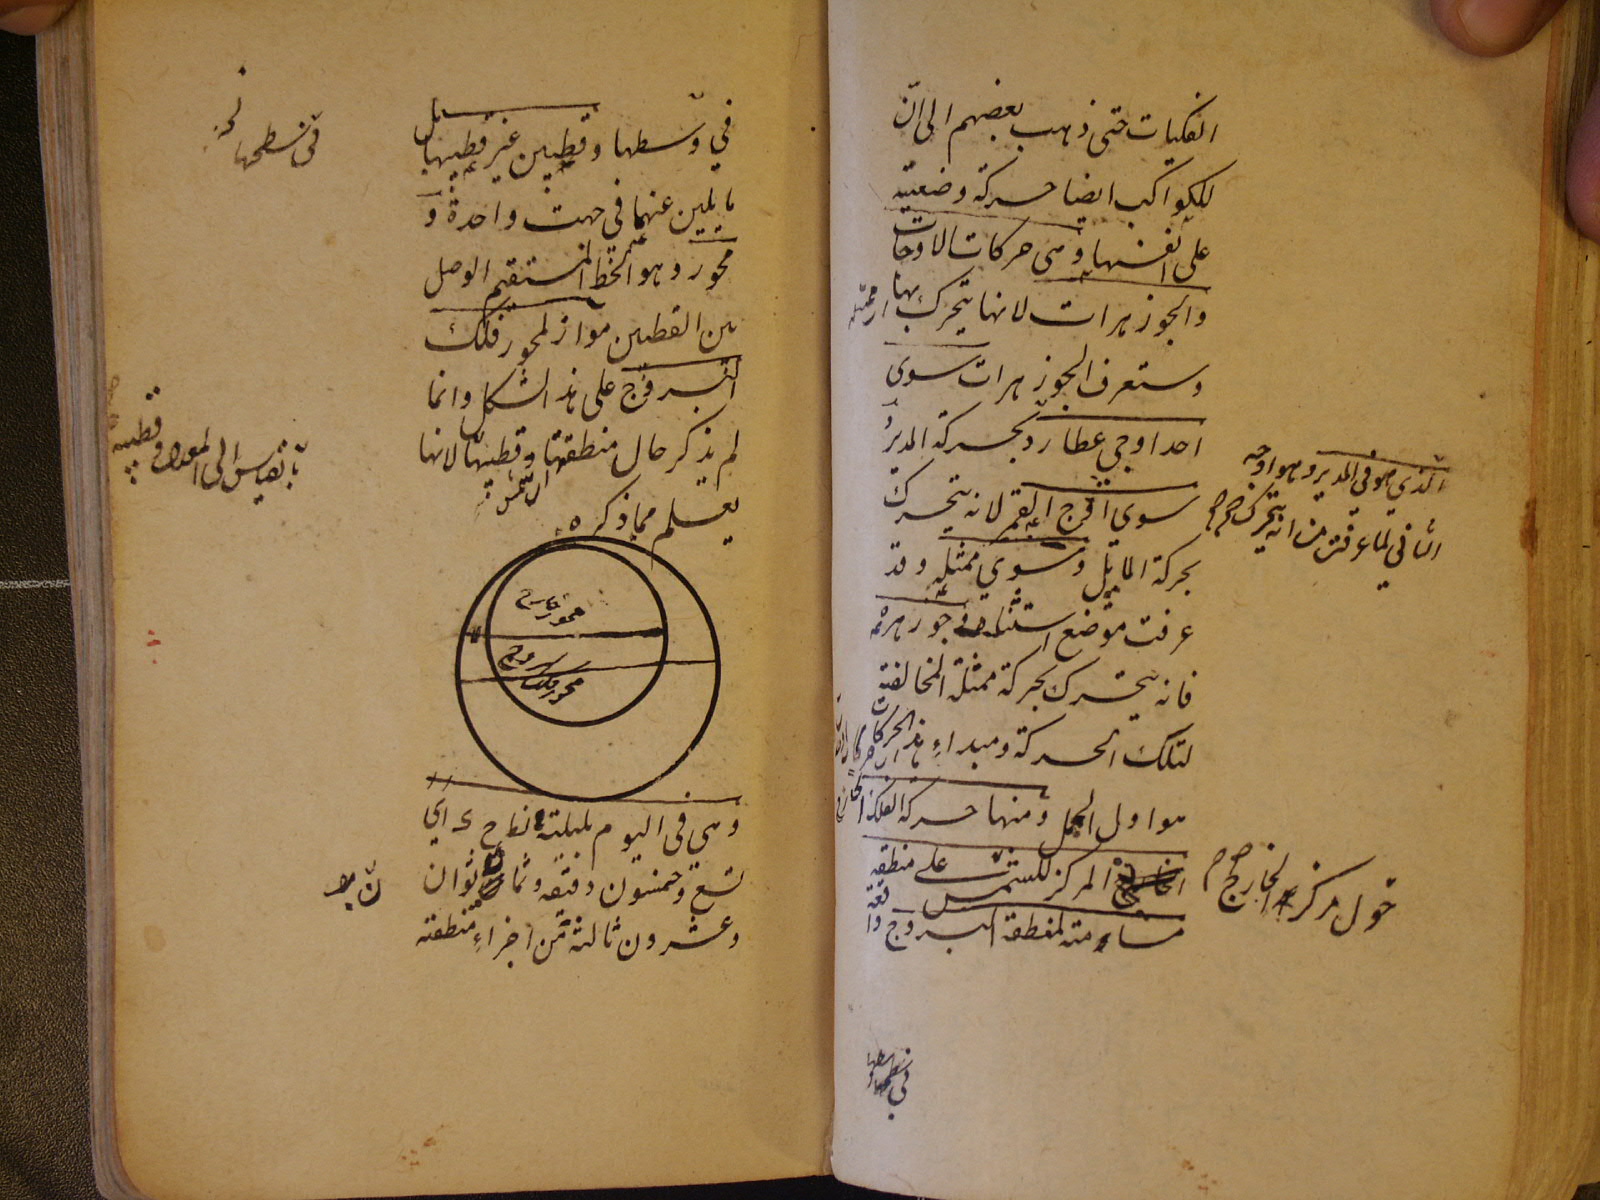 الفلكيات حتى ذهب بعضهم الى ان
للكواكب ايضا حركة وضعية
على انفسها وهى حركات الاوجات
والجوزهرات لانها يتحرك بها
وستعرف الجوزهرات سوى
احد اوجي عطارد بحركة المدير و
سوي اوج القمر لانه يتحرك
بحركة المايل وسوي ممثله وقد
عرفت موضع استثنائه جوزهره
فانه يتحرك بحركة ممثله المخالفة
لتلك الحركة ومبداء هذه الحركات
هو اول الحمل ومنها حركة الفلك
الخارج المركز للشمس على منطقة
مسامتة لمنطقة البروج
الذي هو في المدير وهو اوجه
الثاني لما عرفت من انه يتحرك
حول مركز الخارج
في سطحها
في وسطها وقطبين غير قطبيها بل
مايلين عنهما في جهت واحدة و
محور وهو الخط المستقيم الوصل
بين القطبين مواز لمحور فلك
البروج على هذا الشكل وانما
لم يذكر حال منطقتها وقطبيها لانها
يعلم مما ذكره
في سطحها
بالقياس الى المعدل وقطبيه
محور خارج
محور فلك البروج
وهي فى اليوم بليلته نط ح ك اي
تسع وخمسون دقيقه وثمان ثوان
وعشرون ثالثة من اجزاء منطقته